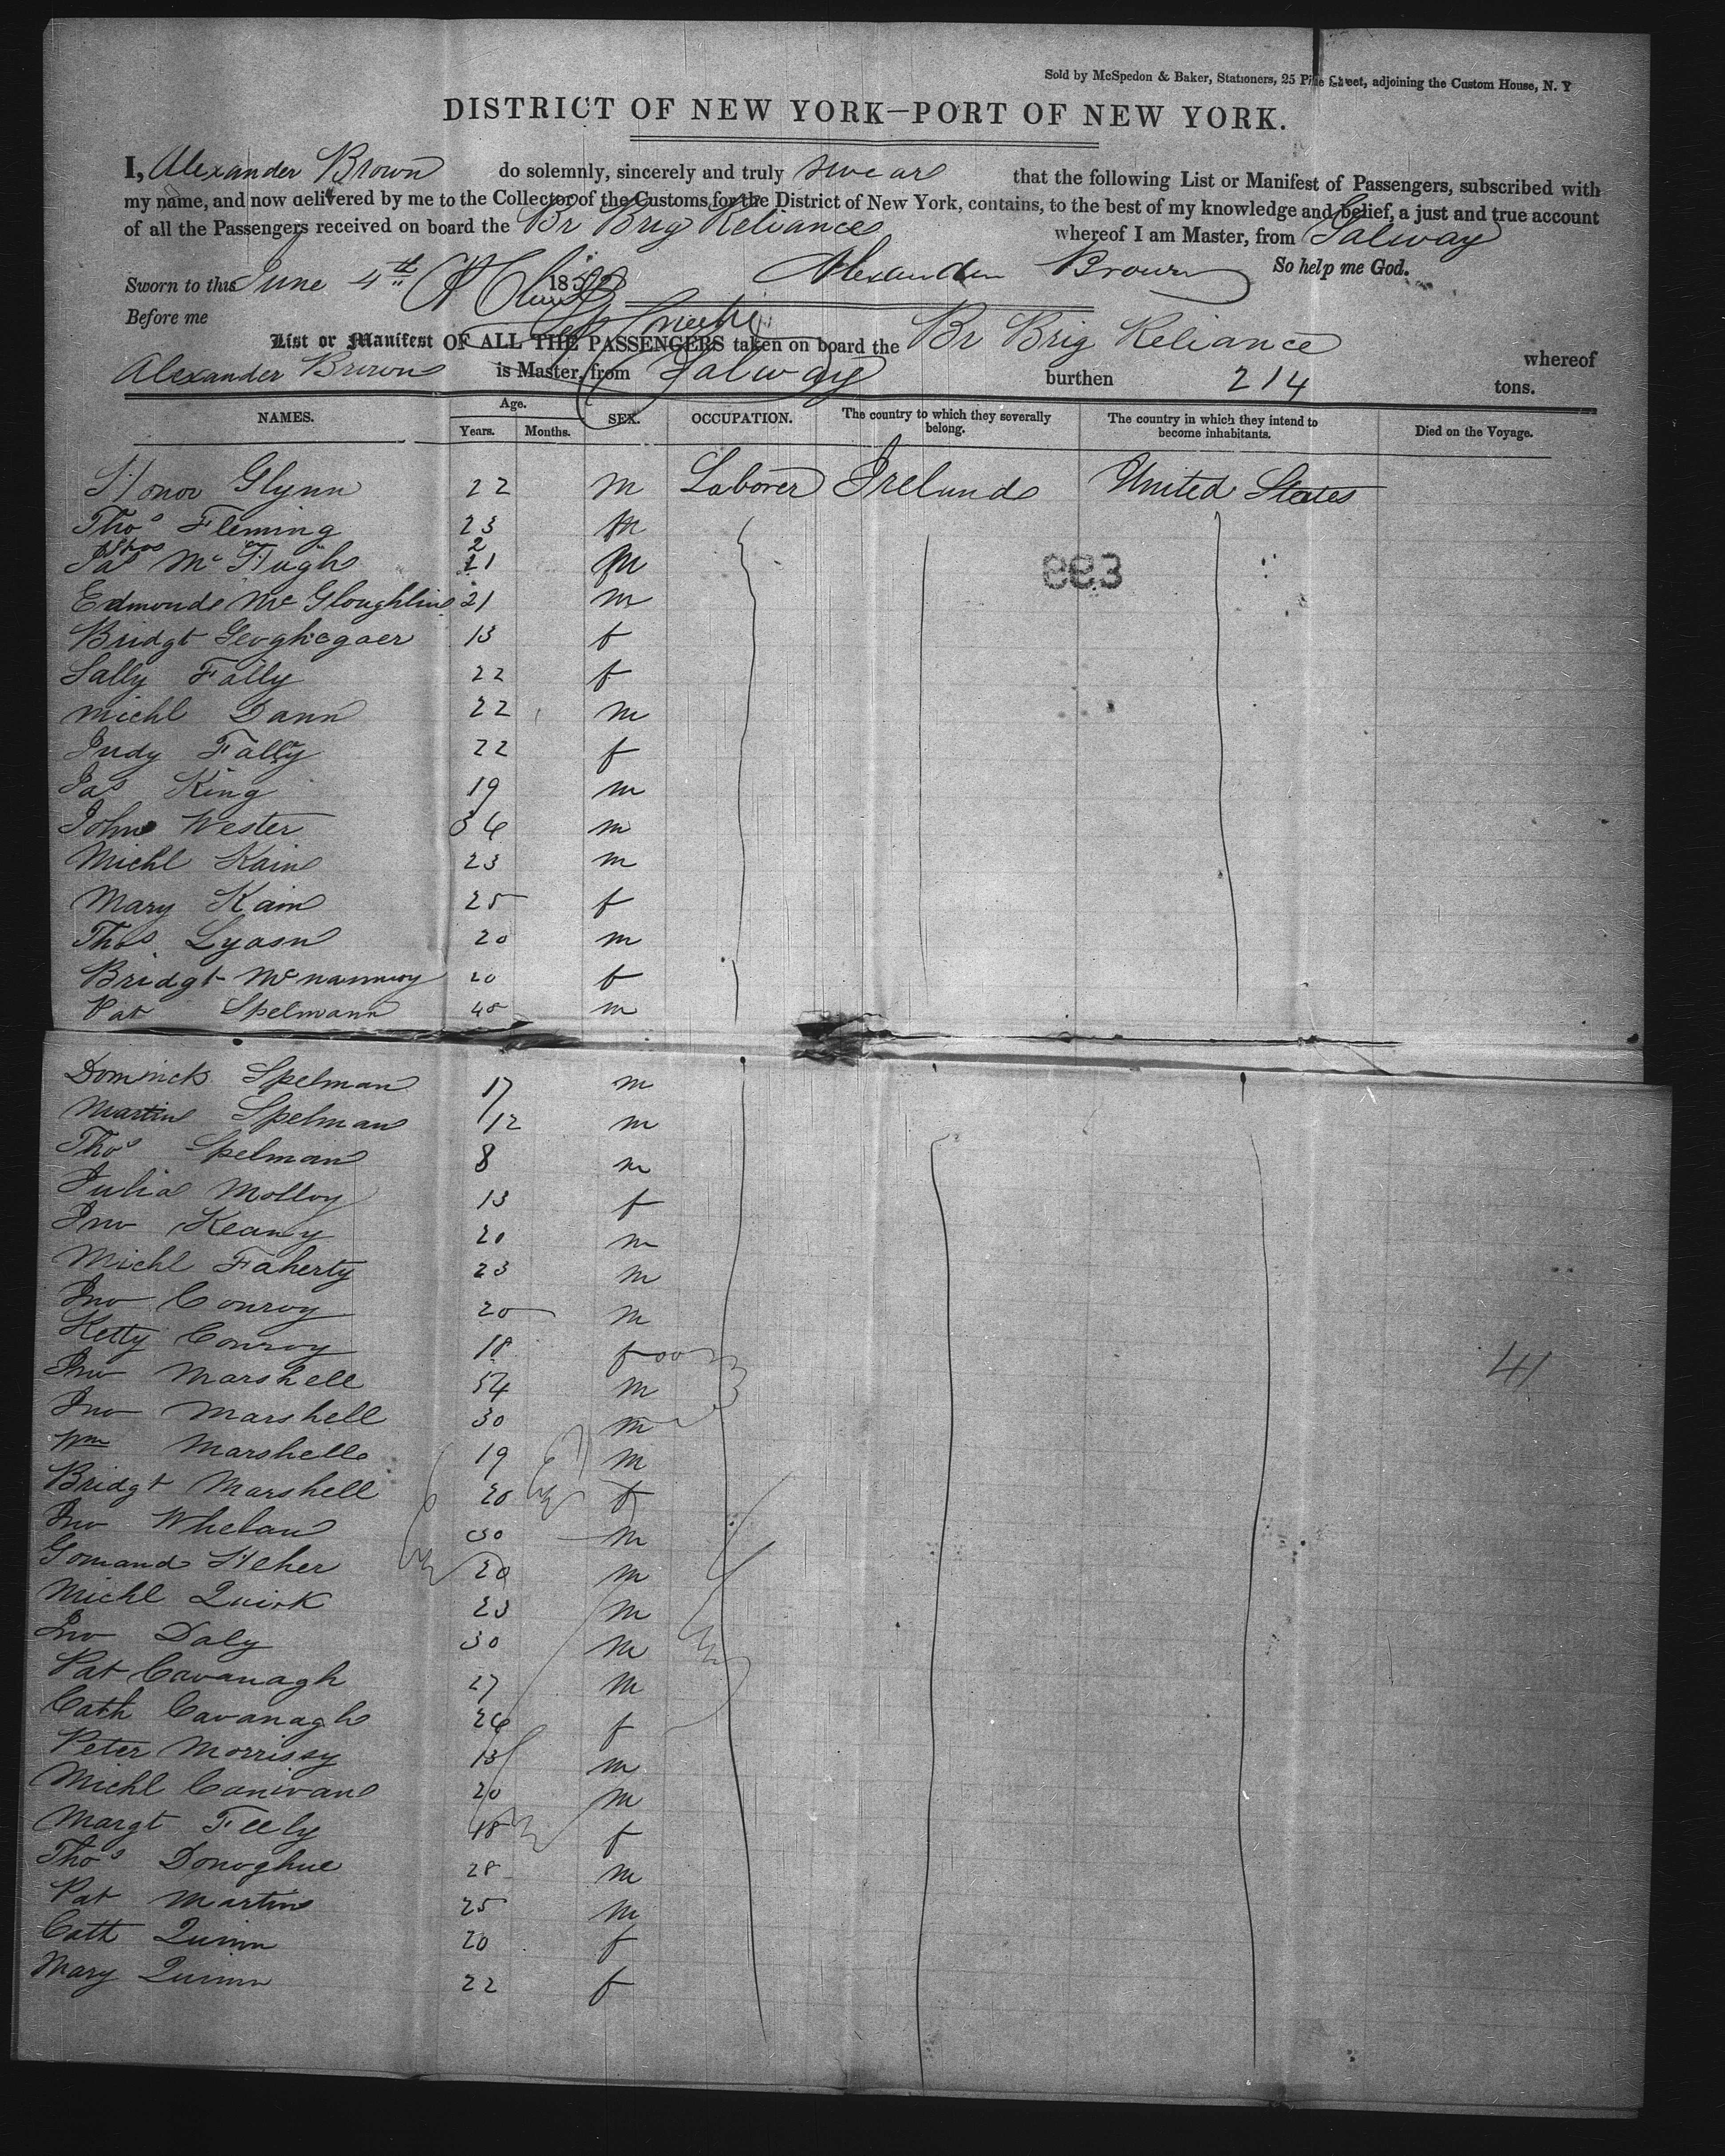 Sold by McSpedon & Baker, Stationers, 25 Pine Street, adjoining the Custom House, N. Y
DISTRICT OF NEW YORK—PORT OF NEW YORK.
I, Alexander Brown do solemnly, sincerely and truly swear that the following List or Manifest of Passengers, subscribed with
my name, and now delivered by me to the Collector of the Customs for the District of New York, contains, to the best of my knowledge and belief, a just and true account
of all the Passengers received on board the Br Brig Reliance whereof I am Master, from Galway
Sworn to this June 4th 185 Alexander Brown So help me God.
Before me
List or Manifest OF ALL THE PASSENGERS taken on board the Br Brig Reliance whereof
Alexander Brown is Master, from Galway burthen 214 tons.
NAMES. Age. Years. Months. SEX. OCCUPATION. The country to which they severally belong. The country in which they intend to become inhabitants. Died on the Voyage.
Honor Glynn 22 m Laborer Ireland United States
Thos Fleming 23 m
Jas McHugh 21 m
Edmond McGloughlin 21 m
Bridgt Geoghegaer 13 f
Sally Fally 22 f
Michl Dann 22 m
Judy Fally 22 f
Jas King 19 m
John Wester 36 m
Michl Kain 23 m
Mary Kain 25 f
Thos Lyasn 20 m
Bridgt McNannwy 20 f
Pat Spelmann 45 m
Dominck Spelman 17 m
Martin Spelman /12 m
Thos Spelman 8 m
Julia Molloy 13 f
Jno Keany 20 m
Michl Faherty 23 m
Jno Conroy 20 m
Ketty Conroy 18 f
Jno Marshell 54 m
Jno Marshell 30 m
Wm Marshell 19 m
Bridgt Marshell 20 f
Jno Whelan 30 m
Gomand Heher 20 m
Michl Quirk 23 m
Jno Daly 30 m
Pat Cavanagh 27 m
Cath Cavanagh 26 f
Peter Morrissy 13 m
Michl Canivan 20 m
Margt Feely 48 f
Thos Donoghue 28 m
Pat Martin 25 m
Cath Quinn 20 f
Mary Quinn 22 f
41